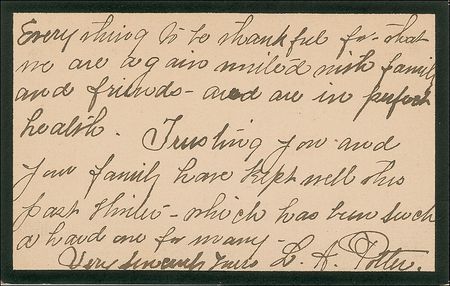 Every thing to be thankful for - that
we are again united with family
and friends - and are in perfect
health. Trusting you and
your family have kept well this
past Winter - which has been such
a hard one for many -
Very sincerely yours L. A. Potter.